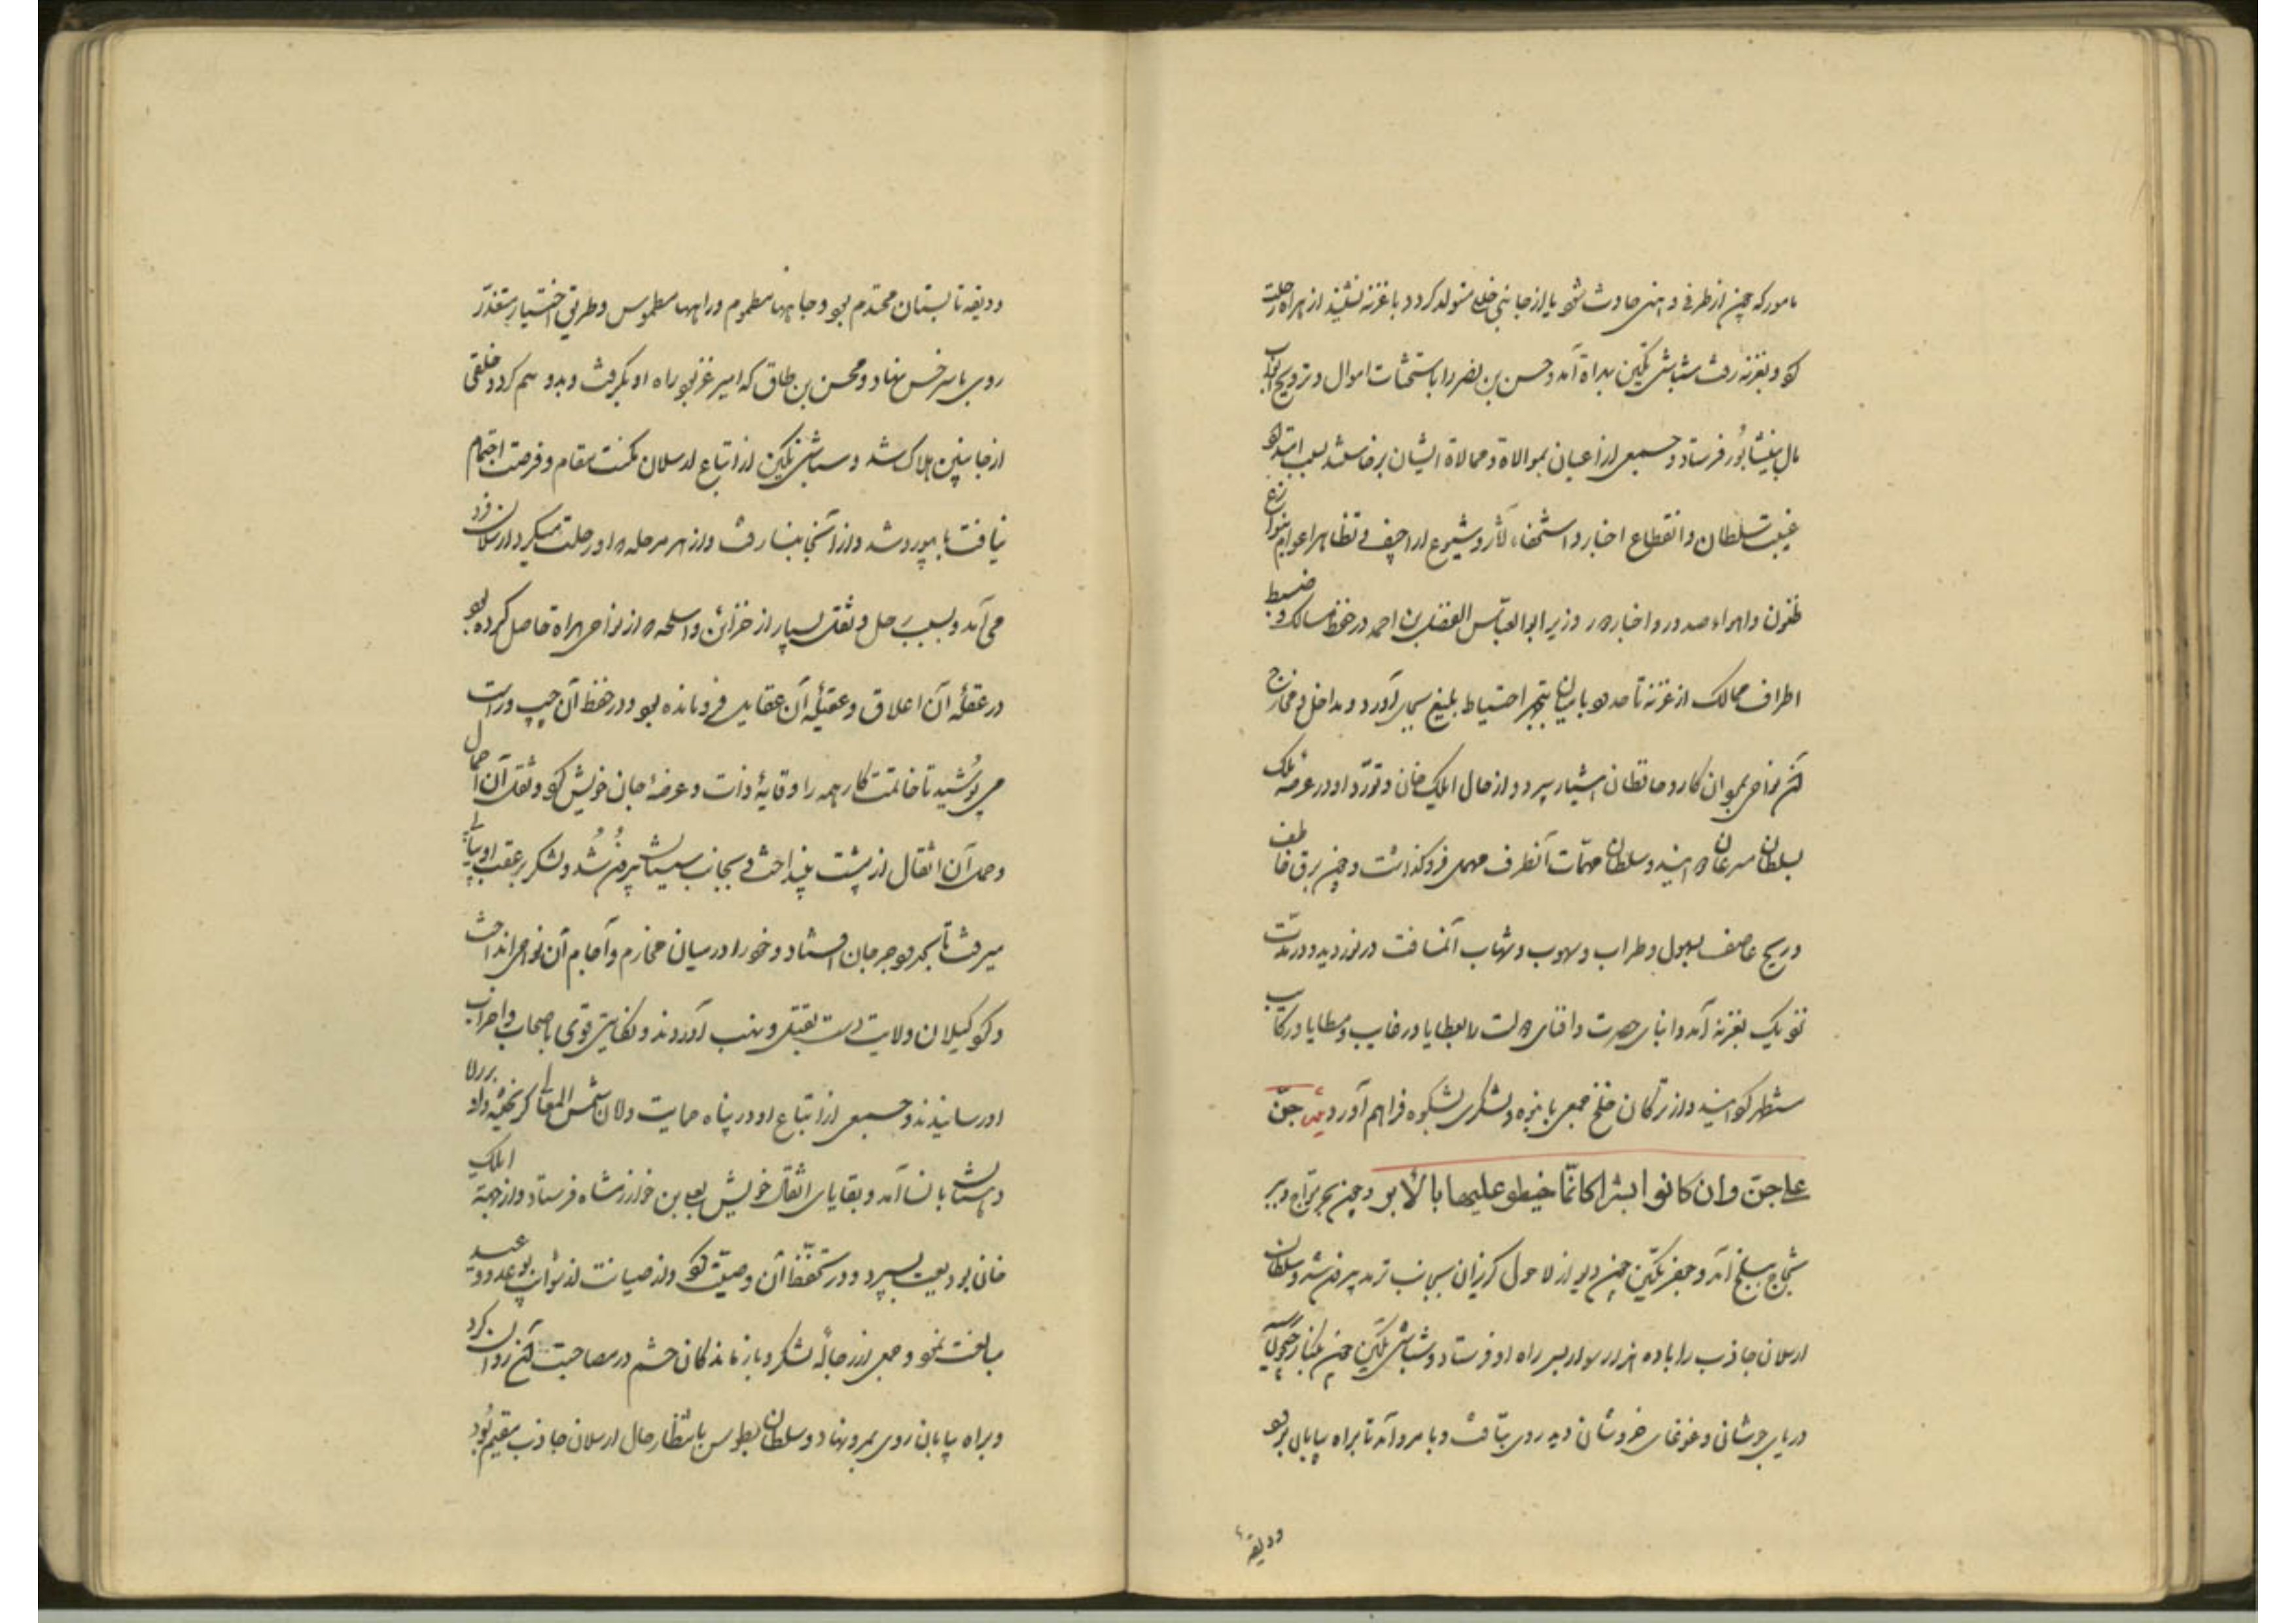 مامور که چون از طرفی وهنی حادث شود یا از جانبی خللی متولد گردد با غزنه نشیند از هراة رحلت
کرد و بغزنه رفت سباشی تکین بهراة آمد و حسن بن نصر را باستحثاث اموال و ترویج ابواب
مال بنیشابور فرستاد و جمعی از اعیان بموالاة و ممالاة ایشان برخاستند بسبب امتداد
غیبت سلطان و انقطاع اخبار و استخفاء آثار و شیوع اراجیف و تظاهر اعوام بتنوازع
ظنون و اهواء صدور و اخبار وزیر ابوالعباس الفضل بن احمد در حفظ مسالک و ضبط
اطراف ممالک از غزنه تا حدود بامیان پنجهیر احتیاط بلیغ بجای آورد و مداخل و مخارج
آن نواحی بمردان کار و حافظان هشیار سپرد و از حال ایلک خان و تورّد او در عرصهٔ ملک
بسلطان مسرعان دوانید و سلطان مهمّات آنطرف مهمل فروگذاشت و چون برق خاطف
و ریح عاصف سهول و ظراب و سهوب و شعاب آن مسافت در نوردید و در مدّت
نزدیک بغزنه آمد و ابنای حضرت و افنای دولت را بعطایا و رغایب و مطایا و رکایب
مستظهر گردانید و از ترکان خلج جمعی بانبوه و لشکری بشکوه فراهم آورد شعر جنّ
علی جنّ و ان کانوا بشر کانّما خیطوا علیها بالأبر و چون بحر موّاج و ابر
ثجّاج ببلخ آمد و جعفر تکین چون دیو از لاحول گریزان بجانب ترمد بیرون شد و سلطان
ارسلان جاذب را با ده هزار سوار بر سر راه او فرستاد و سباشی تکین چون بکنار جیحون رسید
دریای جوشان و غوغای خروشان دید روی بتافت و با مرو آمد تا براه بیابان برود
ودیقهٔ
ودیقه تابستان محتدم بود و چاهها مطموم و راهها مطموس و طریق اختیار متعذّر
روی با سرخس نهاد و محسن بن طاق که امیر غز بود راه او بگرفت و بدو هم کرد و خلقی
از جانبین هلاک شد و سباشی تکین از اتباع ارسلان مکنت مقام و فرصت اجتمام
نیافت با بیورد شد و از آنجا بنسا رفت و از هر مرحله که او رحلت میکرد ارسلان فرود
می آمد و بسبب حمل و ثقل بسیار از خزائن و اسلحه که از نواحی هراة حاصل کرده بود
در عقلهٔ آن اعلاق و عقیلهٔ آن عقایل فرو مانده بود و در حفظ آن چپ و راست
می پوشید تا خاتمت کار همه را وقایهٔ ذات و عرضهٔ جان خویش کرد و ثقل آن احمال
و حمل آن اثقال از پشت بینداخت و بجانب سیستان بیرون شد و لشکر بر عقب او بیاپی
میرفت تا بحدود جرجان افتاد و خود را در میان مخارم و آجام آن نواحی انداخت
و کردکیلان ولایت دست بقتل و نهب آوردند و نکایتی قوی باصحاب و احزاب
او رسانیدند و جمعی از اتباع او در پناه حمایت و لان شمس المعالی گریختند و او بر راه
دهستان با نسا آمد و بقایای اثقال خویش بعلی بن خوارزمشاه فرستاد و از جهة ایلک
خان بودیعت بسپرد و در تحفّظ آن وصیّت کرد و در صیانت از شوایب عبید
مبالغت نمود و جمعی از رجالهٔ لشکر و بازماندگان حشم در مصاحبت آن روان کرد
و براه بیابان روی بمرو نهاد و سلطان بطوس بانتظار حال ارسلان جاذب مقیم بود